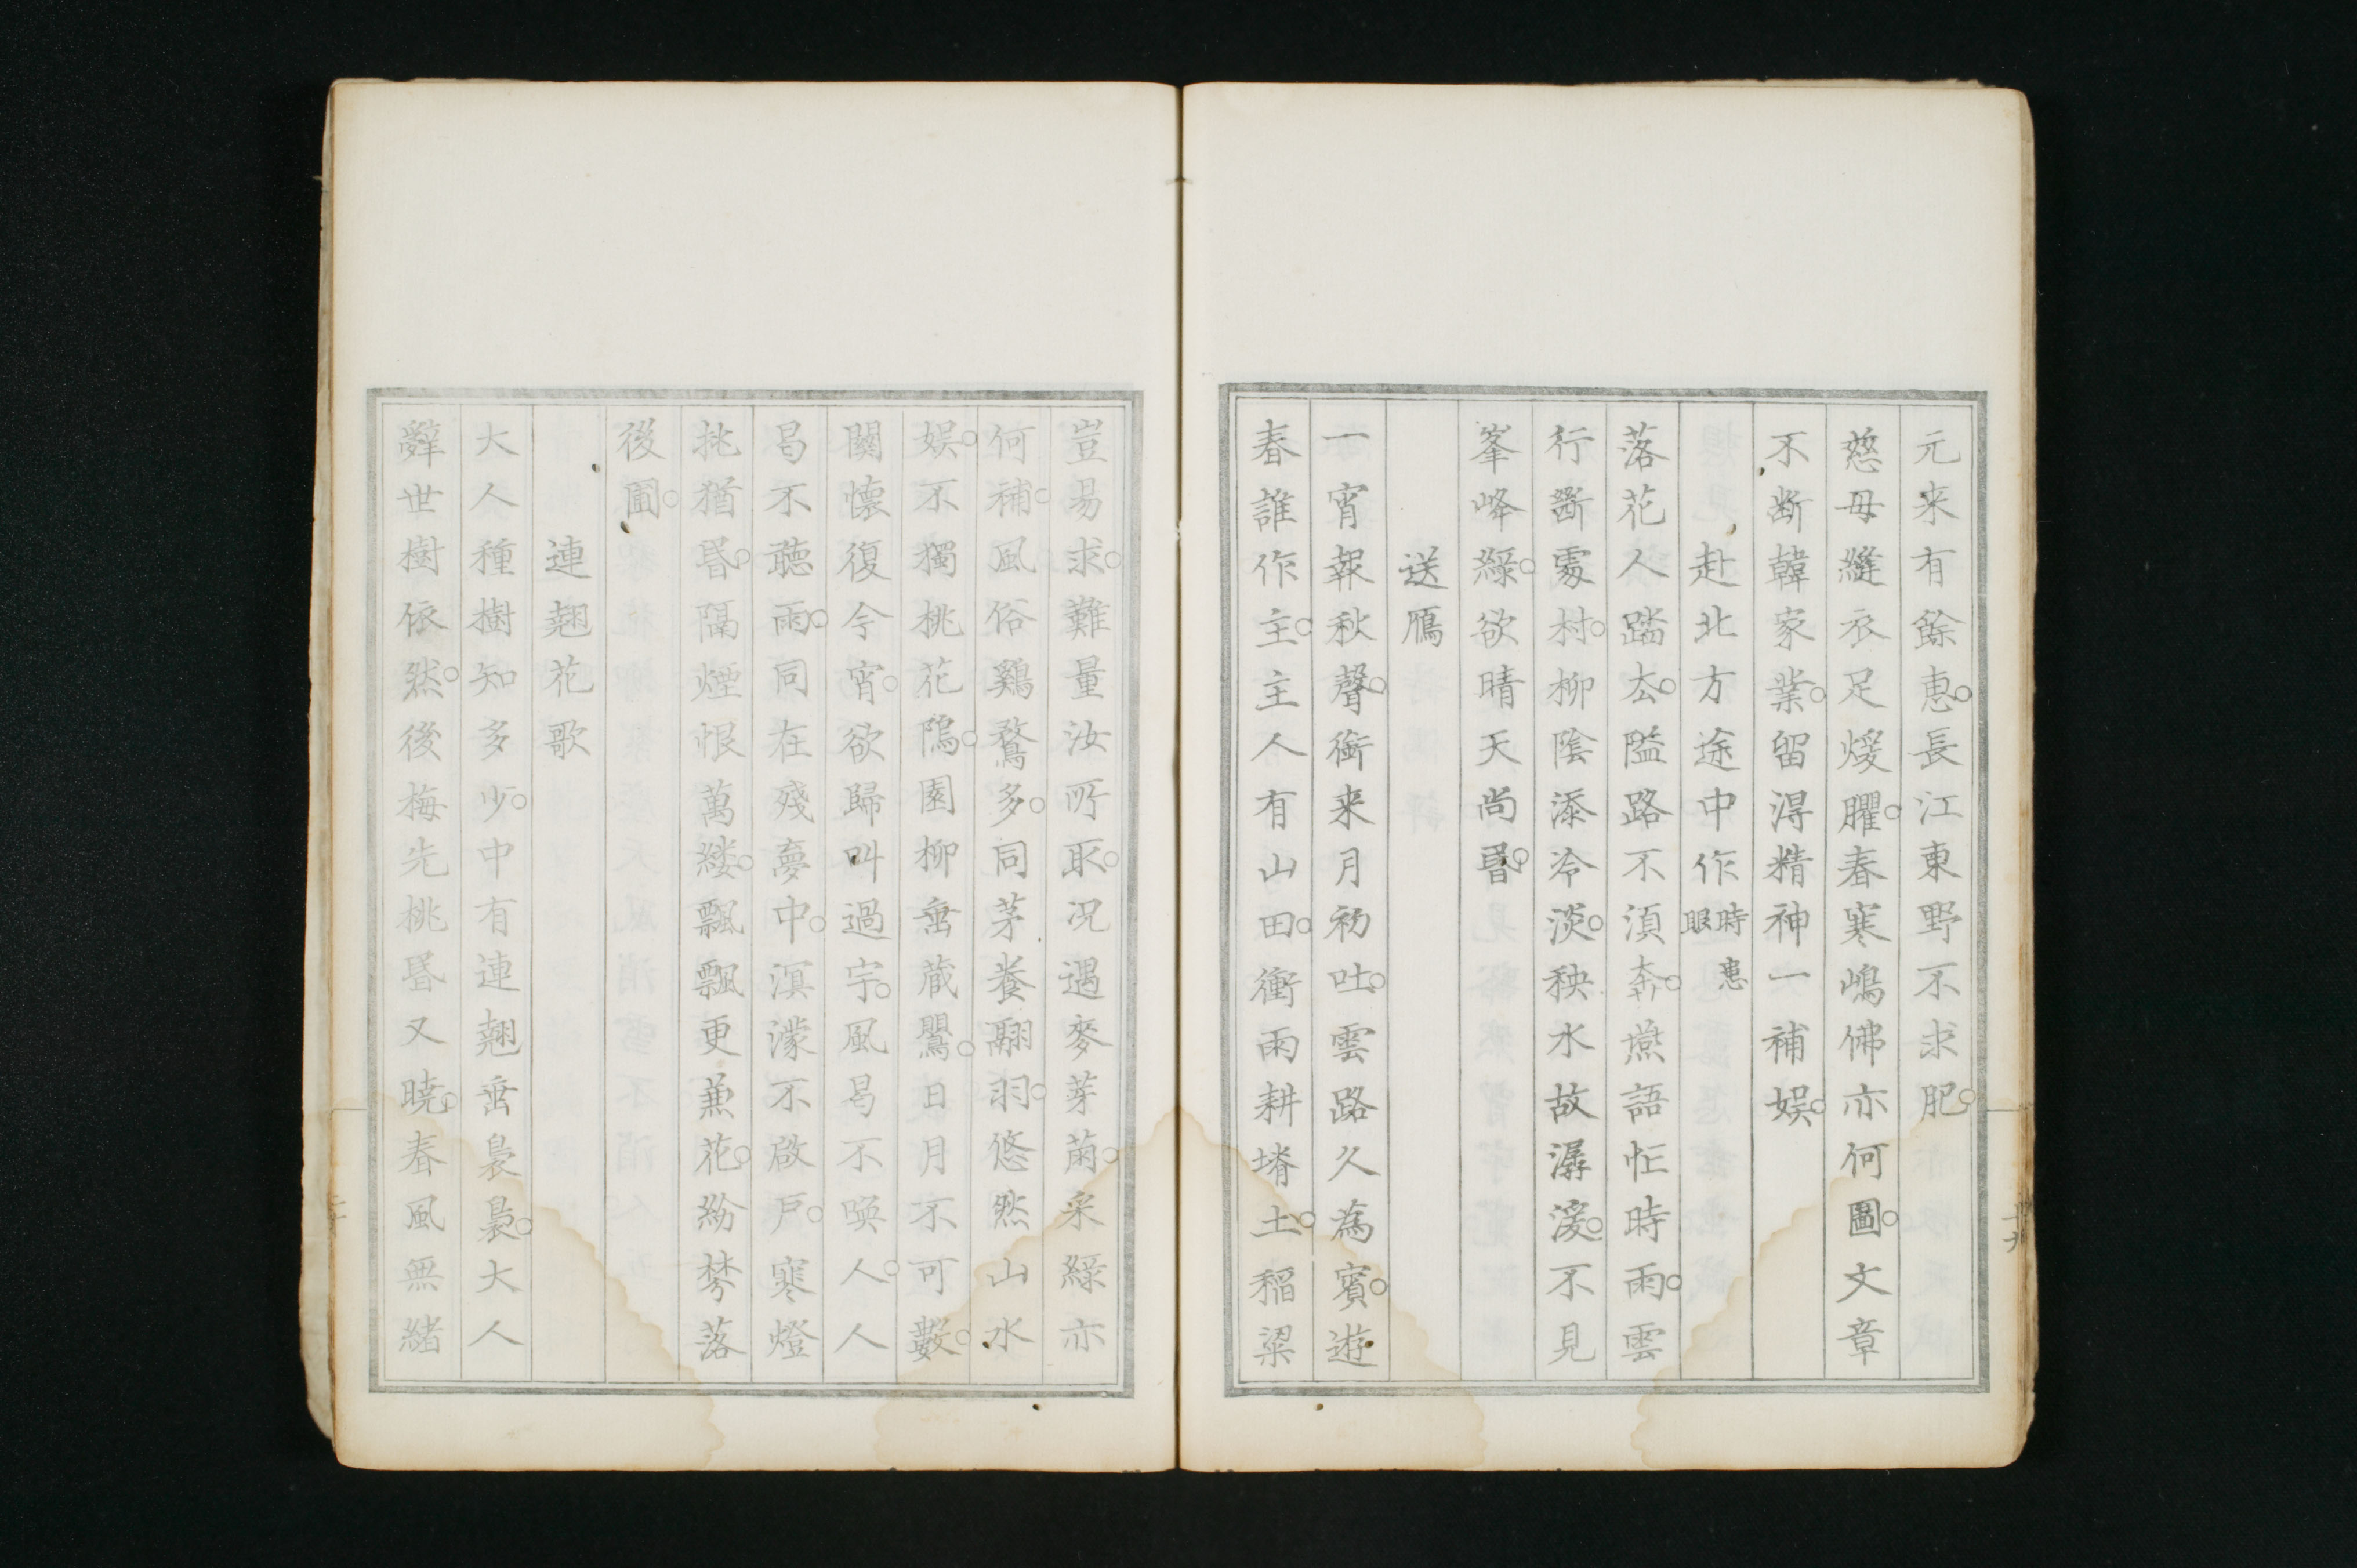 元来有餘惠○長江東野不求肥○
慈母縫衣足煖臞○春寒嶋佛亦何圖○文章
不断韓家業○留淂精神一補娯○
赴北方途中作 時患眼
落花人踏去○隘路不湏奔○燕語忙時雨○雲
行斷處村○柳陰添冷淡○秧水故潺湲○不見
峯峰綠○欲晴天尚昬○
送鴈
一宵報秋聲○銜来月初吐○雲路久為賓○遊
春誰作主○主人有山田○衝雨耕堉土○稲粱
豈易求○難量汝所取○况遇麥芽菌○采綠亦
何補○風俗鷄鶩多○同茅養翮羽○悠然山水
娯○不獨桃花隖○園柳垂蔵鷪○日月不可數○
關懐復今宵○欲歸叫過宇○風曷不喚人○人
曷不聽雨○同在殘夢中○溟濛不啟戸○寒燈
挑猶昬○隔煙恨萬縷○飄飄更蒹花○紛棼落
後圃○
連翹花歌
大人種樹知多少○中有連翹垂裊裊○大人
辭世樹依然○後梅先桃昬又曉○春風無緒
十九
二十